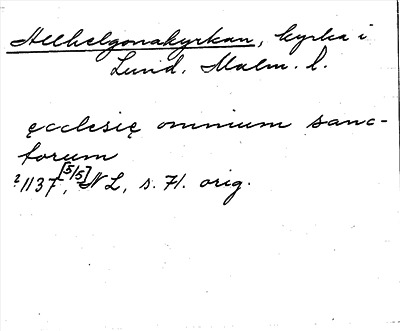 Allhelgonakyrkan, kyrka i
Lund. Malm. l.
ęcclesię omnium sanc-
torum
?1137 [5/5], NL, s. 71. orig.